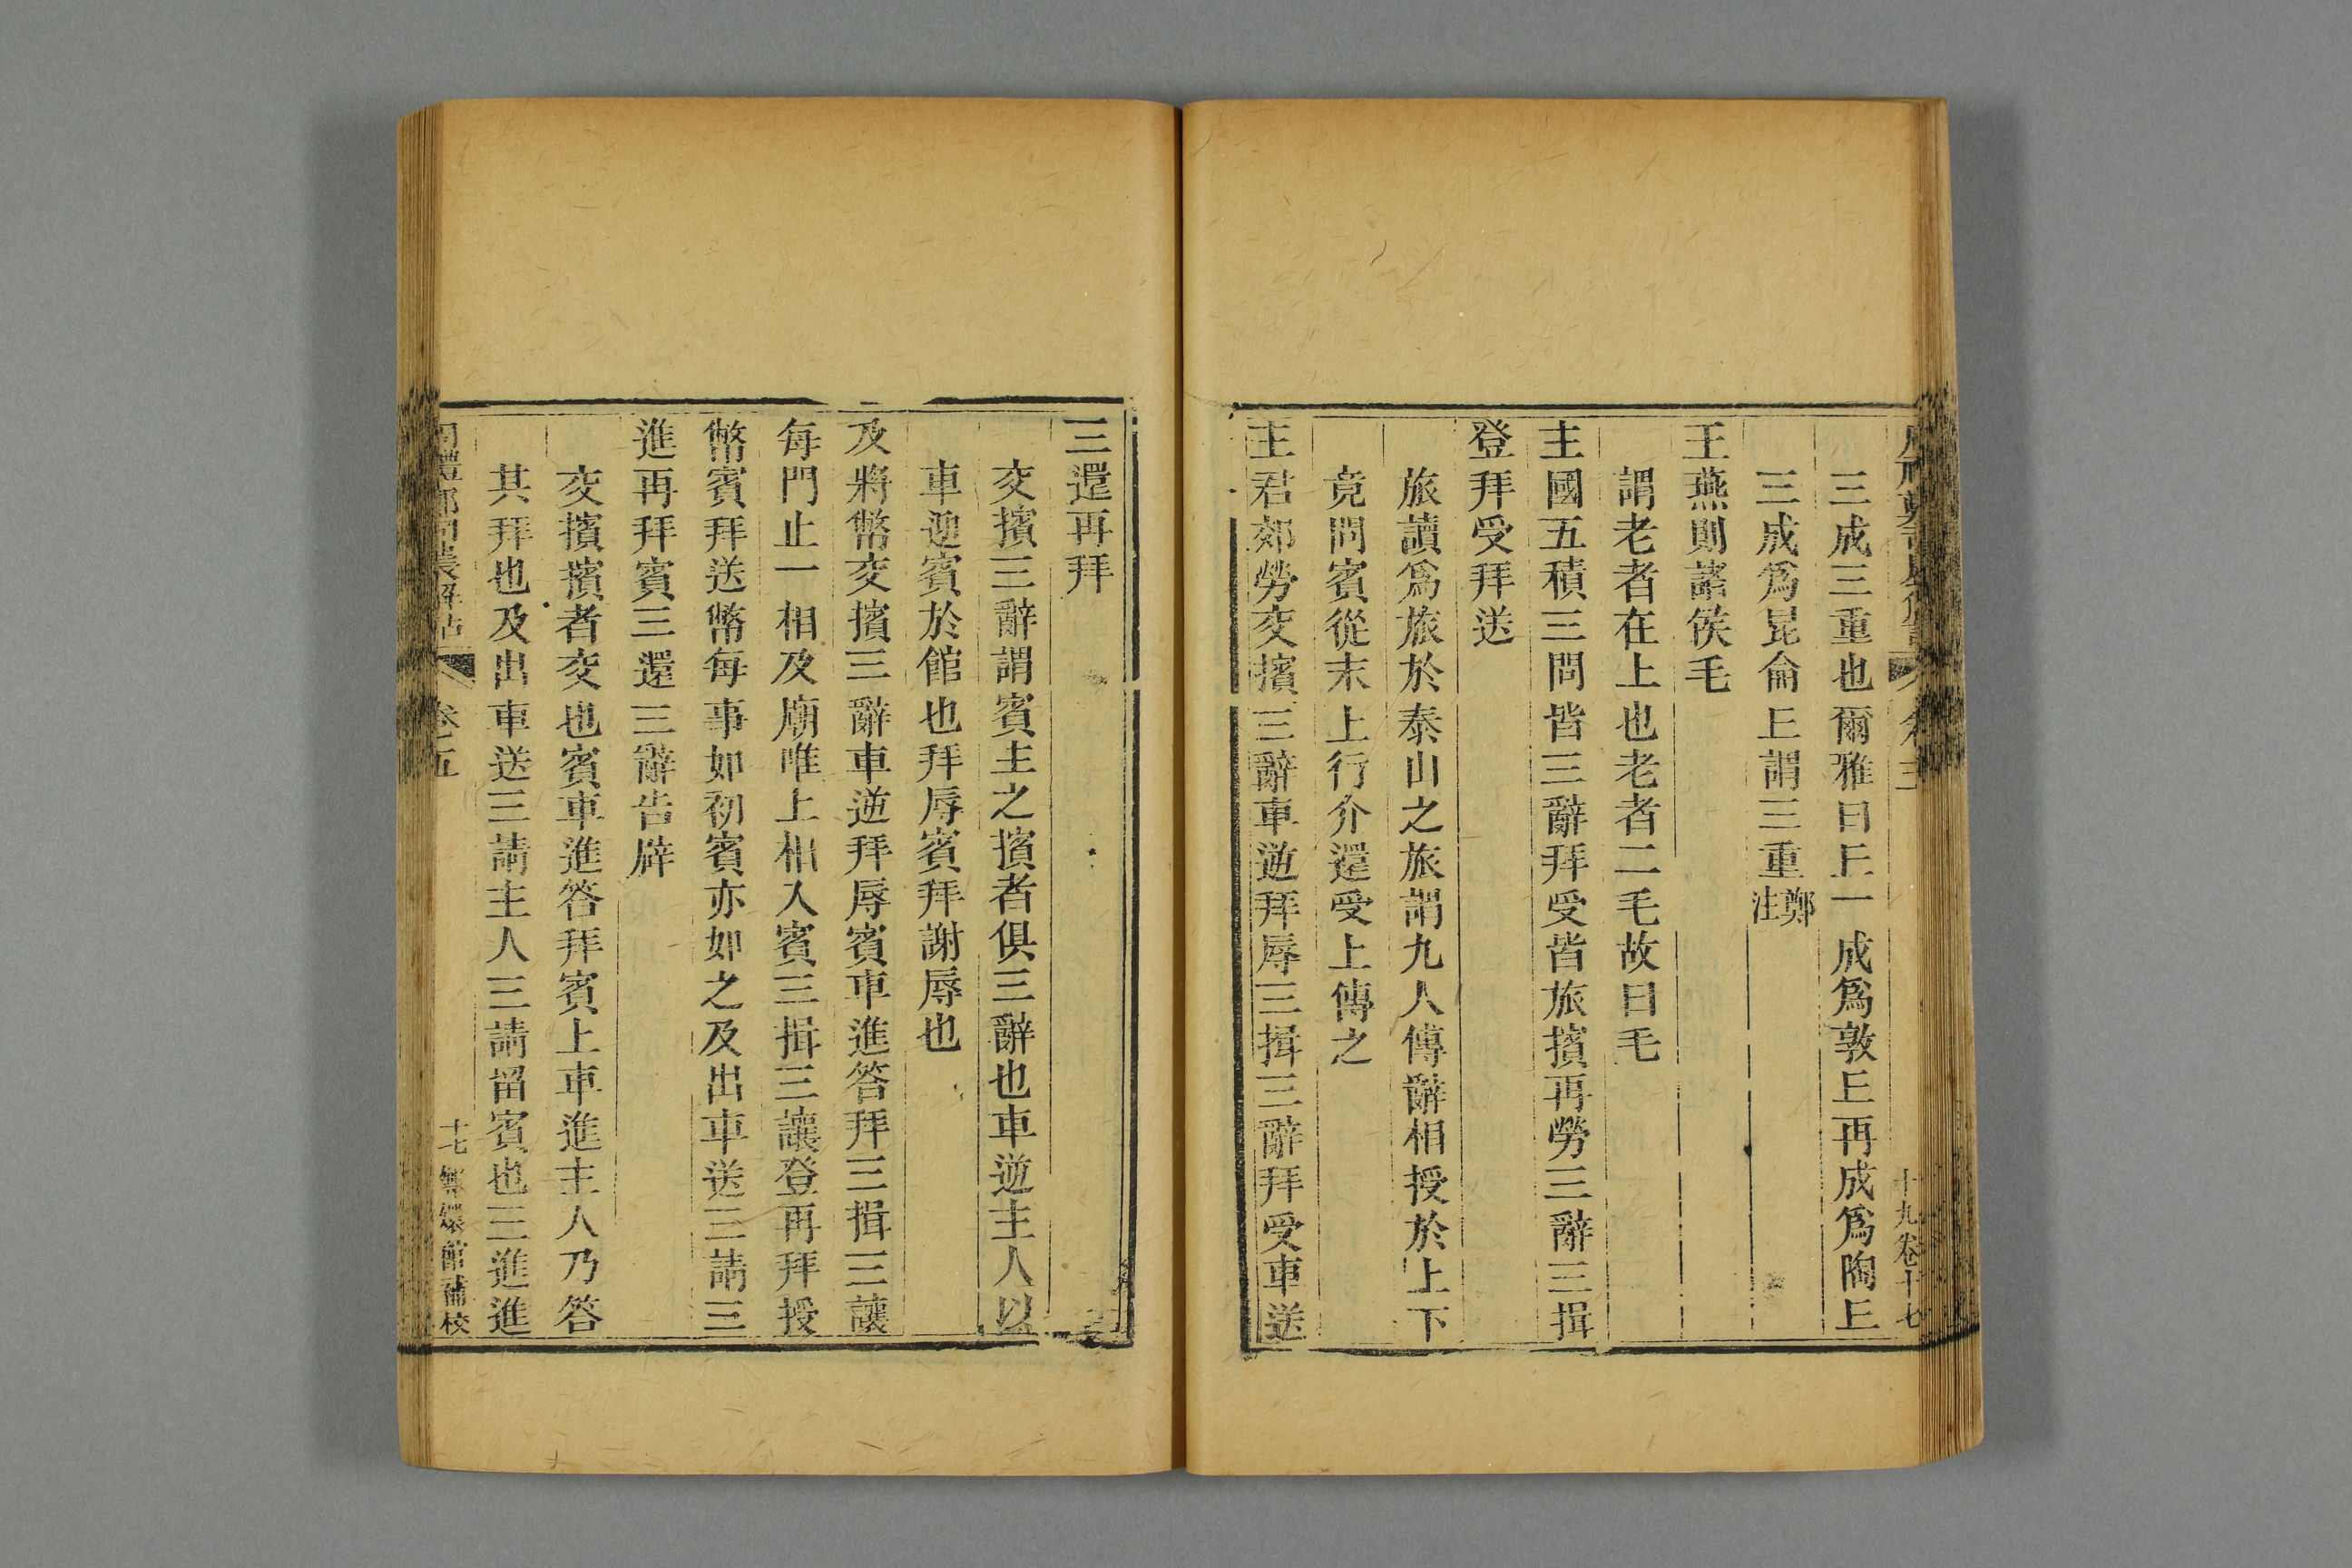 三成三重也爾雅曰丘一成爲敦丘再成爲陶丘
三成爲昆侖丘謂三重鄭注
王燕則諸侯毛
謂老者在上也老者二毛故曰毛
主國五積三問皆三辭拜受皆旅擯再勞三辭三揖
登拜受拜送
旅讀爲旅於泰山之旅謂九人傳辭相授於上下
竟問賓從末上行介還受上傳之
主君郊勞交擯三辭車逆拜辱三揖三辭拜受車送
三還再拜
交擯三辭謂賓主之擯者俱三辭也車逆主人以
車迎賓於館也拜辱賓拜謝辱也
及將幣交擯三辭車逆拜辱賓車進答拜三揖三讓
每門止一相及廟唯上相入賓三揖三讓登再拜授
幣賓拜送幣每事如初賓亦如之及出車送三請三
進再拜賓三還三辭告辟
交擯擯者交也賓車進答拜賓上車進主人乃答
其拜也及出車送三請主人三請留賓也三進進
卷五
十七 無㝹館補校